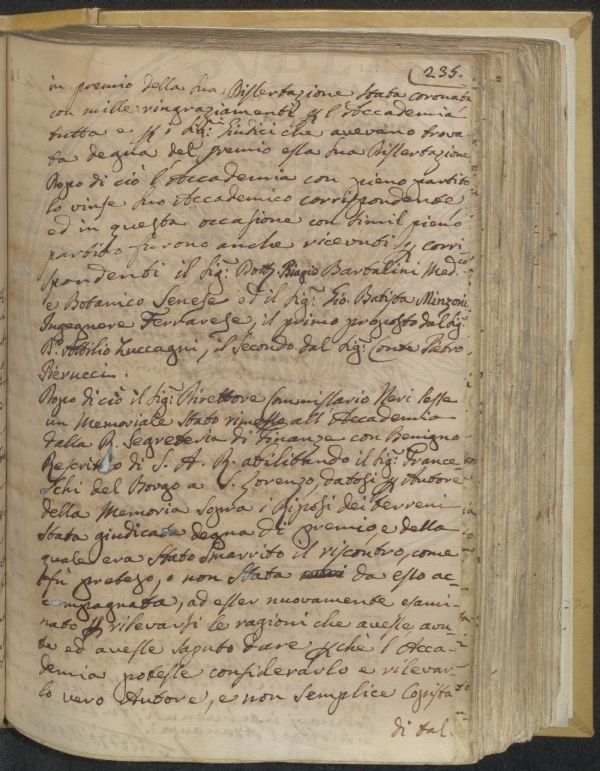 235.
in premio della sua Dissertazione stata coronata
con mille ringraziamenti p l'Accademia
tutta e p i Sig.ri Giudici che avevano trova-
ta degna del premio essa sua Dissertazione
Dopo di ciò l'Accademia con pieno partito
lo vinse suo Accademico corrispondente
ed in questa occasione con simil pieno
partito furono anche ricevuti p corri
spondenti il Sig.r Dott.r Biagio Bartalini Med.co
e Botanico Senese ed il Sig.r Gio. Batista Minzoni
Ingegnere Ferrarese, il primo proposto dal Sig.r
D.r Attilio Zuccagni, il secondo dal Sig.r Conte Pietro
Pierucci.
Dopo di ciò il Sig.r Direttore Commissario Neri lesse
un Memoriale stato rimesso all'Accademia
dalla R. Segreteria di Finanze con Benigno
Rescritto di S. A. R. abilitando il Sig.r France-
schi del Borgo a S. Lorenzo, datosi p Autore
della Memoria sopra i Riposi dei terreni
stata giudicata degna di premio e della
quale era stato smarrito il riscontro, come
fù preteso, o non stata da esso ac-
compagnata, ad esser nuovamente esami-
nato p rilevarsi le ragioni che avesse avu-
te ed avesse saputo dare p chè l'Acca-
demia potesse considerarlo e rilevar-
lo vero Autore, e non semplice Copista
di tal.